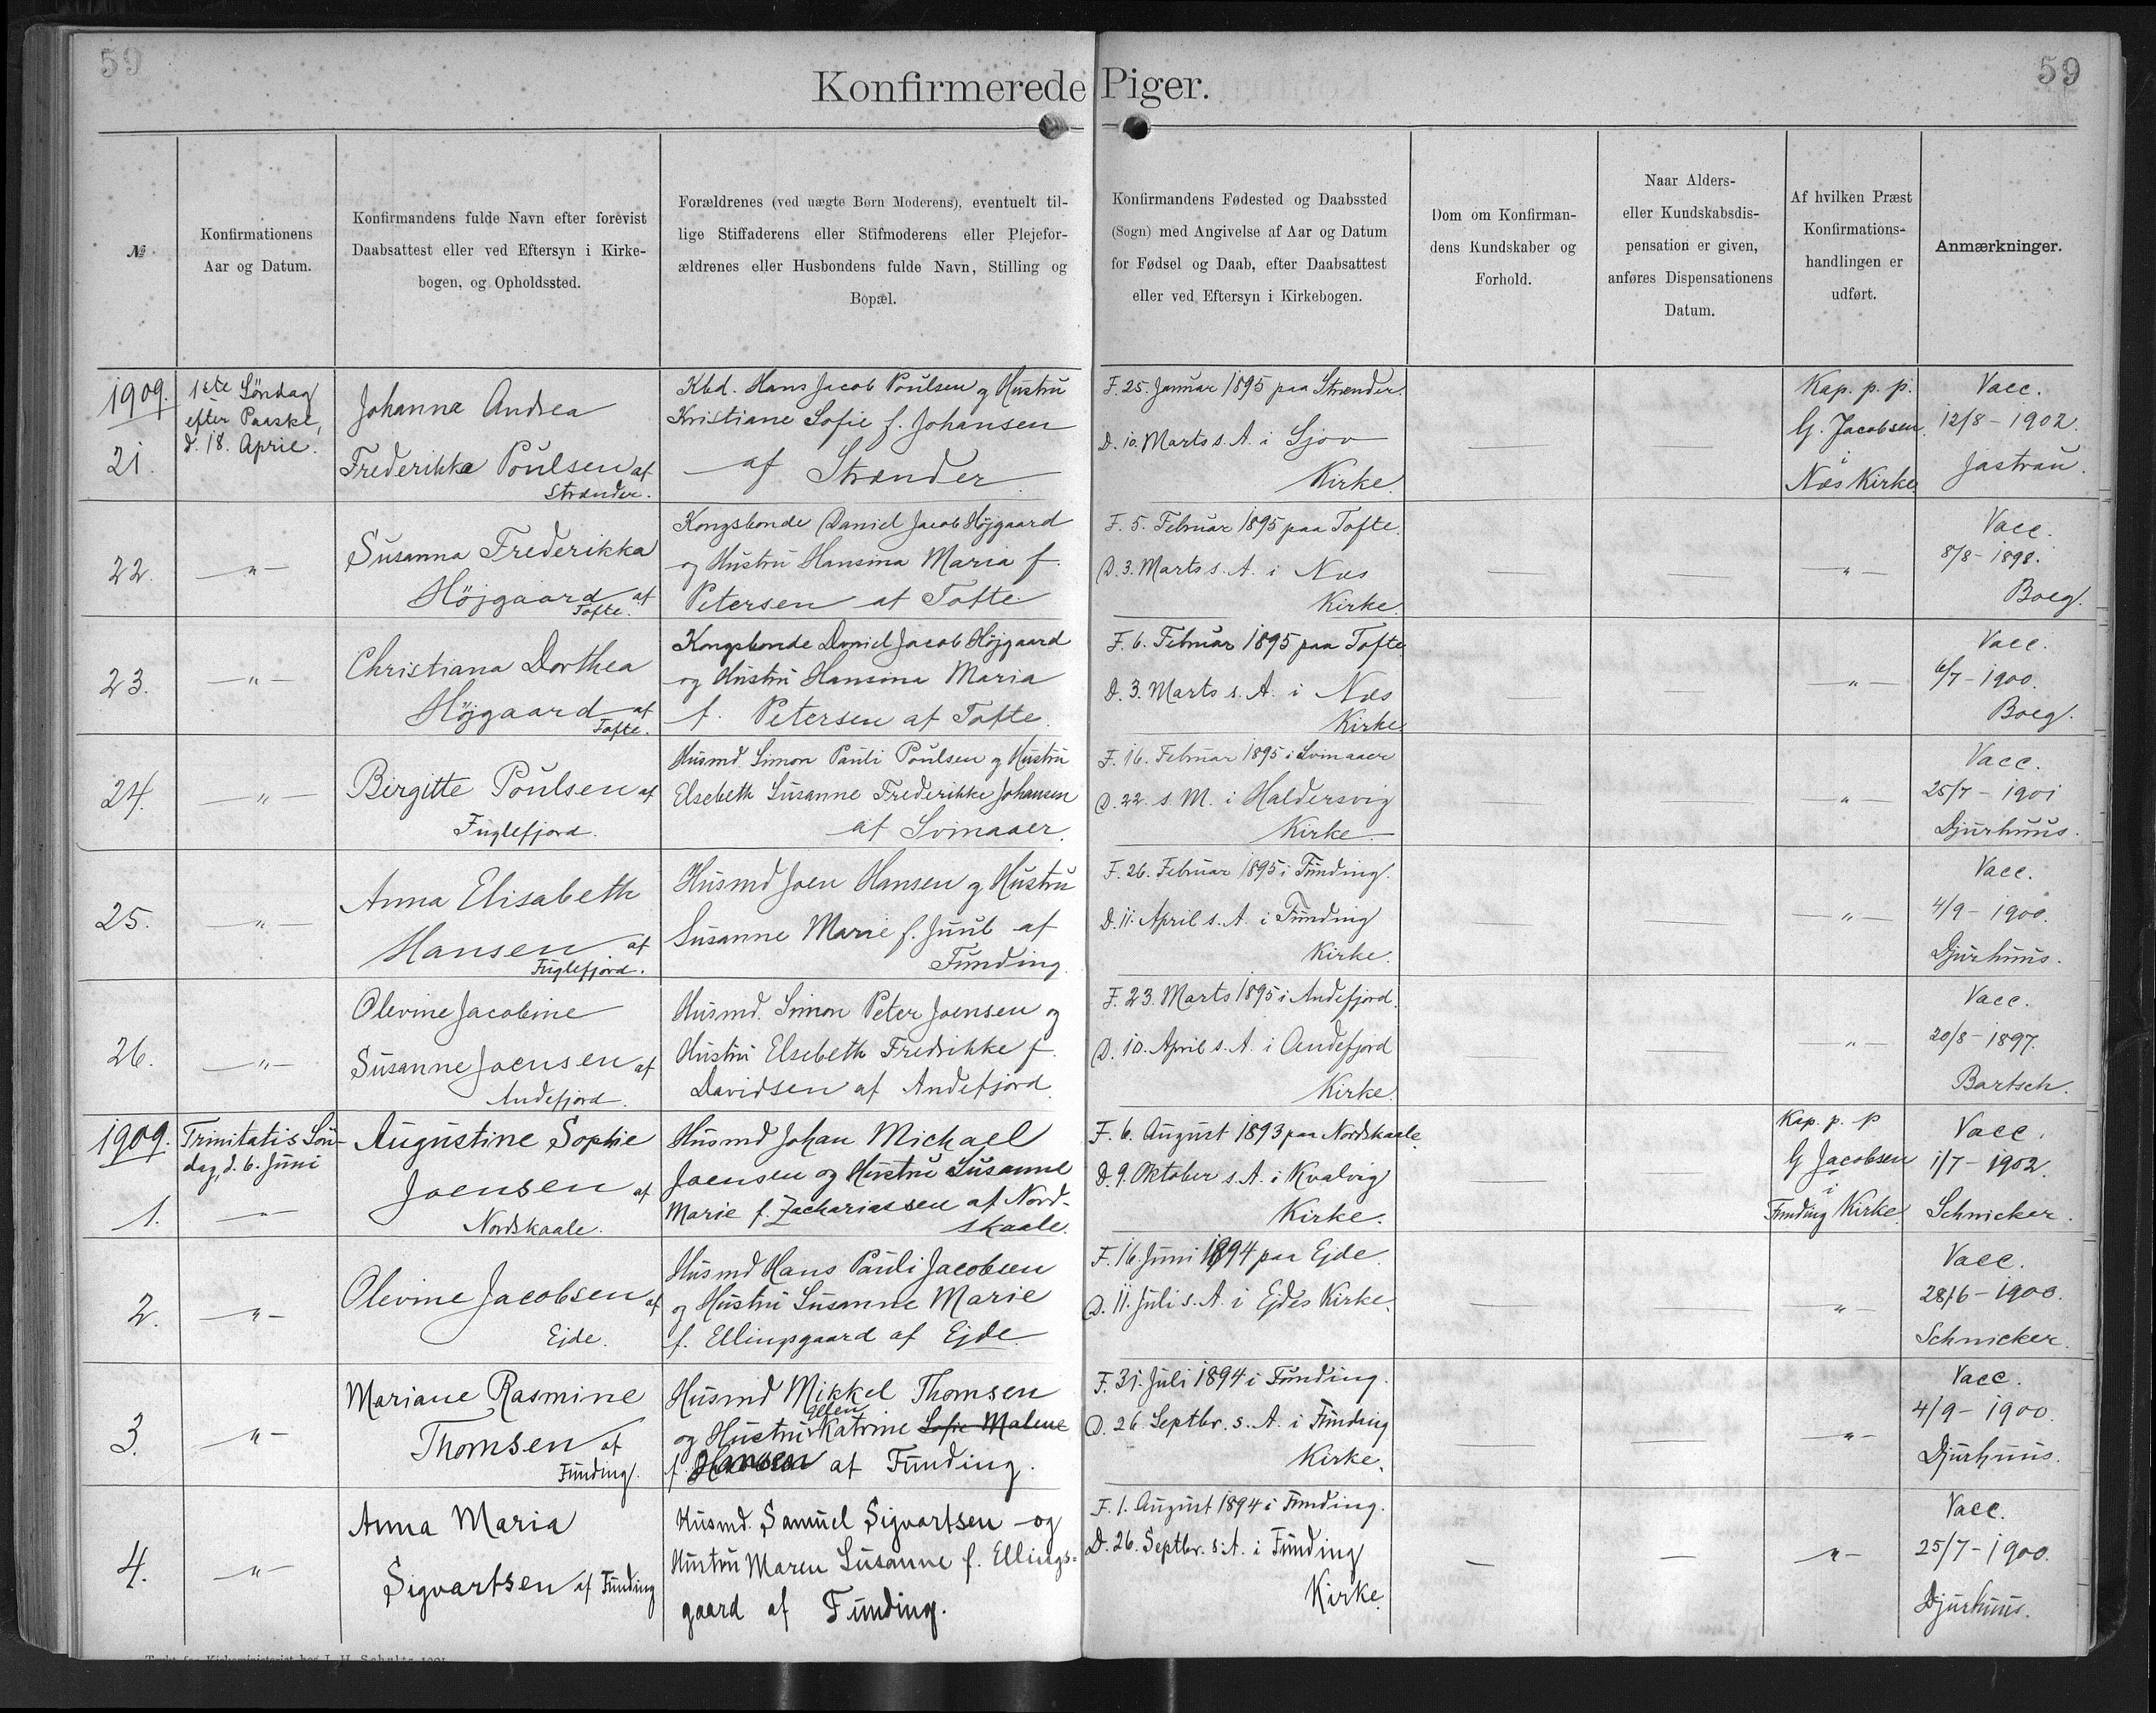 59
59
Konfirmerede Piger.
№
Konfirmationens
Aar og Datum.
Konfirmandens fulde Navn efter forevist
Daabsattest eller ved Eftersyn i Kirke-
bogen, og Opholdssted.
Forældrenes (ved uægte Børn Moderens), eventuelt til-
lige Stiffaderens eller Stifmoderens eller Plejefor-
ældrenes eller Husbondens fulde Navn, Stilling og
Bopæl.
Konfirmandens Fødested og Daabssted
(Sogn) med Angivelse af Aar og Datum
for Fødsel og Daab, efter Daabsattest
eller ved Eftersyn i Kirkebogen.
Dom om Konfirman-
dens Kundskaber og
Forhold.
Naar Alders-
eller Kundskabsdis-
pensation er given,
anføres Dispensationens
Datum.
Af hvilken Præst
Konfirmations-
handlingen er
udført.
Anmærkninger.
1909.
21.
1ste Söndag
efter Paaske,
d. 18. April.
Johanna Andrea
Frederikka Poulsen af
Strænder.
Kbd. Hans Jacob Poulsen og Hustru
Kristiane Sofie f. Johansen
af Strænder
F. 25. Januar 1895 paa Strænder.
D. 10. Marts s. A. i Sjov
Kirke.
—
—
Kap. p. p.
G. Jacobsen
i
Næs Kirke
Vacc.
12/8 - 1902.
Jastrau.
22.
—"—
Susanna Frederikka
Höjgaard af
Tofte.
Kongsbonde Daniel Jacob Höjgaard
og Hustru Hansina Maria f.
Petersen af Tofte
F. 5. Februar 1895 paa Tofte.
D. 3. Marts s. A. i Næs
Kirke.
—
—
—"—
Vacc.
8/8 - 1898.
Boeg.
23.
—"—
Christiana Dorthea
Höjgaard af
Tofte.
Kongsbonde Daniel Jacob Höjgaard
og Hustru Hansina Maria
f. Petersen af Tofte.
F. 6. Februar 1895 paa Tofte
D. 3. Marts s. A. i Næs
Kirke
—
—
—"—
Vacc.
6/7 - 1900.
Boeg.
24.
—"—
Birgitte Poulsen af
Fuglefjord.
Husmd. Simon Pauli Poulsen og Hustru
Elsebeth Susanne Frederikke Johansen
af Svinaaer.
F. 16. Februar 1895 i Svinaaer
D. 22. s. M. i Haldersvig
Kirke
—
—
—"—
Vacc.
25/7 - 1901
Djurhuus.
25.
—"—
Anna Elisabeth
Hansen af
Fuglefjord.
Husmd Joen Hansen og Hustru
Susanne Marie f. Juul af
Funding.
F. 26. Februar 1895 i Funding.
D. 11. April s. A. i Funding
Kirke.
—
—
—"—
Vacc.
4/9 - 1900.
Djurhuus.
26.
—"—
Olevine Jacobine
Susanne Joensen af
Andefjord.
Husmd. Simon Peter Joensen og
Hustru Elsebeth Fredrikke f.
Davidsen af Andefjord.
F. 23. Marts 1895 i Andefjord.
D. 10. April s. A. i Andefjord
Kirke.
—
—
—"—
Vacc.
20/8 - 1897.
Bartsch.
1909.
1.
Trinitatis Sön-
dag, d. 6. Juni
—"—
Augustine Sophie
Joensen af
Nordskaale.
Husmd Johan Michael
Joensen og Hustru Susanne
Marie f. Zachariassen af Nord-
skaale.
F. 6. August 1893 paa Nordskaale
D. 9. Oktober s. A. i Kvalvig
Kirke.
—
—
Kap. p. p
G Jacobsen
i
Funding Kirke
Vacc.
1/7 - 1902.
Schnicker.
2.
—"—
Olevine Jacobsen af
Ejde.
Husmd Hans Pauli Jacobsen
og Hustru Susanne Marie
f. Ellingsgaard af Ejde
F. 16. Juni 1894 paa Ejde.
D. 11. Juli s. A. i Ejdes Kirke.
—
—
—"—
Vacc.
28/6 - 1900.
Schnicker.
3.
—"—
Mariane Rasmine
Thomsen af
Funding.
Husmd Mikkel Thomsen
og Hustru Katrine Sofie Malene
f. Hansen af Funding.
F. 31. Juli 1894 i Funding.
D. 26. Septbr. s. A. i Funding
Kirke.
—
—
—"—
Vacc.
4/9 - 1900.
Djurhuus.
4.
—"—
Anna Maria
Sigvartsen af Funding
Husmd. Samuel Sigvartsen og
Hustru Maren Susanne f. Ellings-
gaard af Funding.
F. 1. August 1894 i Funding.
D. 26. Septbr. s. A. i Funding
Kirke.
—
—
—"—
Vacc.
25/7 - 1900.
Djurhuus.